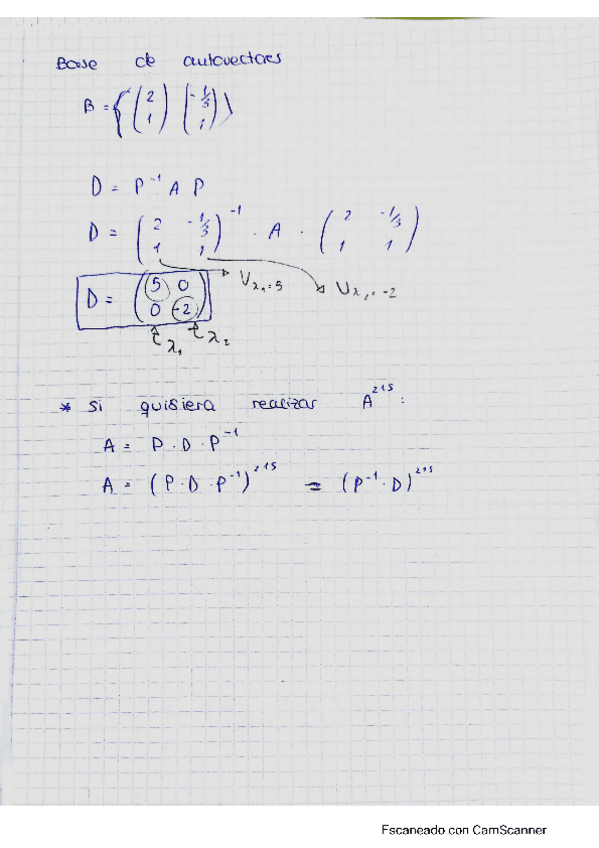 Base de autovectores
B = { (2 1) (-1/3 1) }
D = P⁻¹ A P
D = (2 -1/3 1 1)⁻¹ · A · (2 -1/3 1 1)
Vλ₁=5 Vλ₂=-2
D = (5 0 0 -2)
λ₁ λ₂
* Si quisiera realizar A²¹⁵ :
A = P · D · P⁻¹
A = (P · D · P⁻¹)²¹⁵ = (P⁻¹ · D)²¹⁵
Escaneado con CamScanner